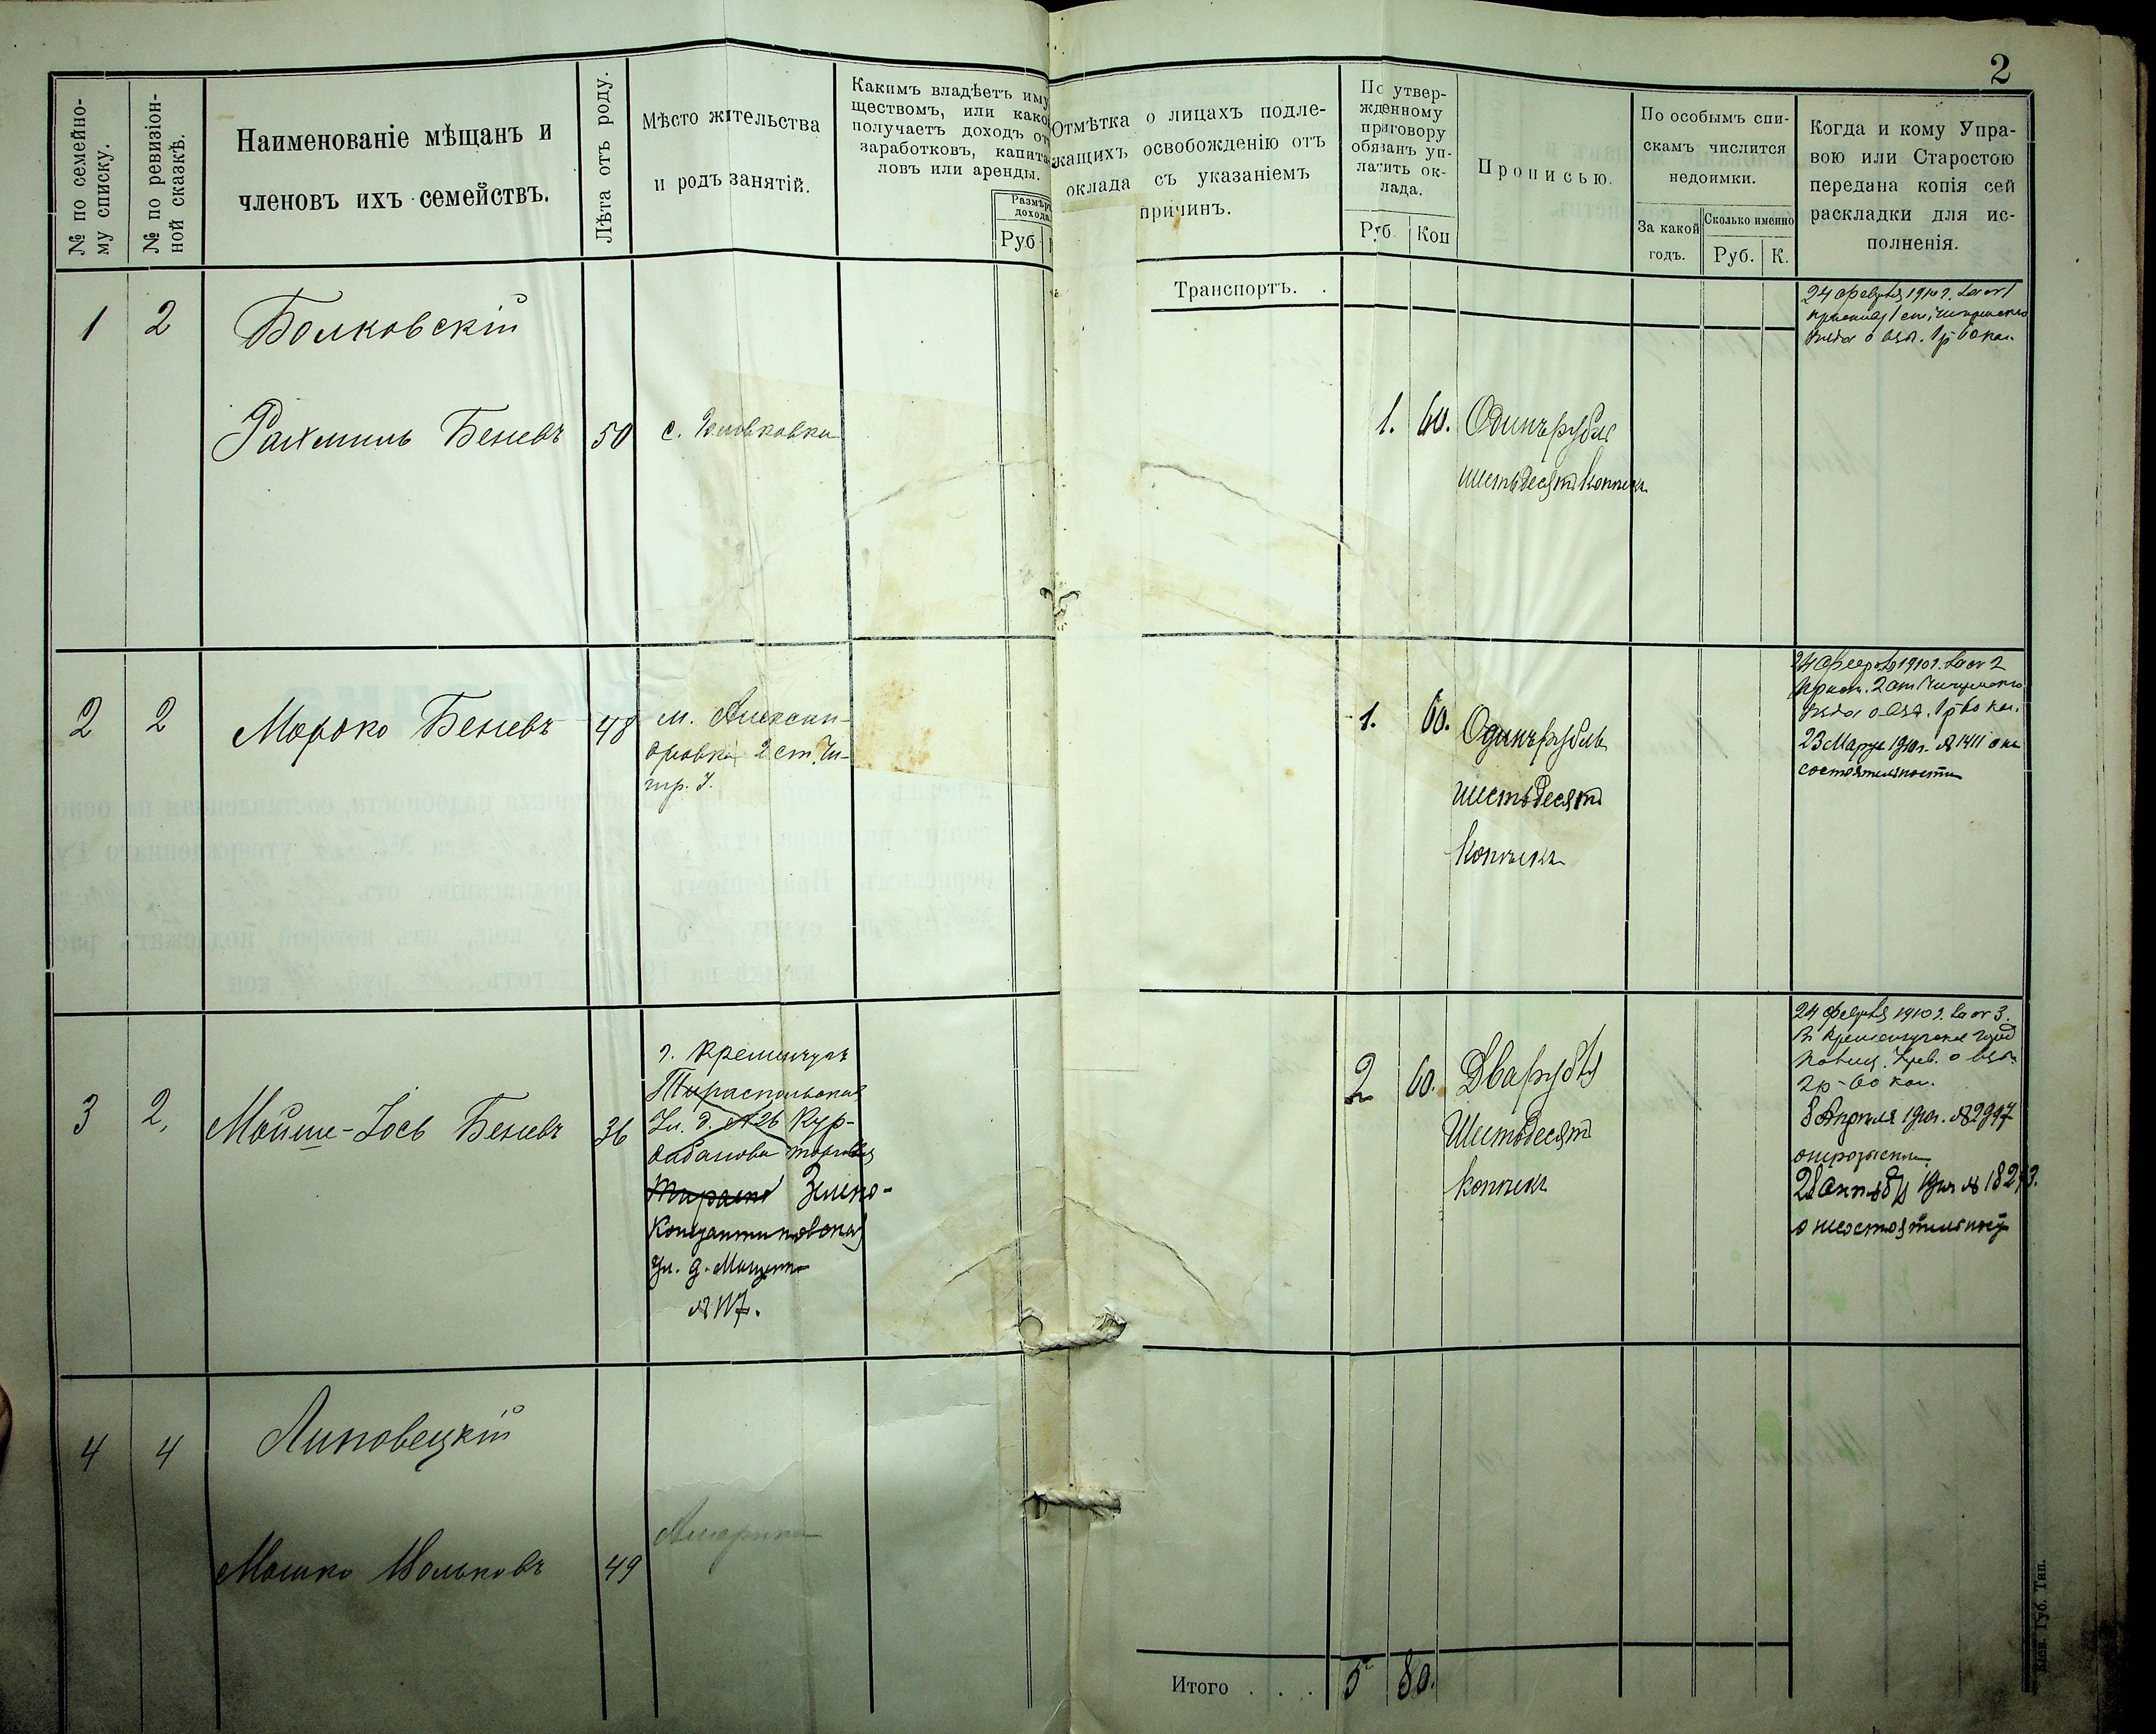 2
№ по семейно-
му списку.
№ по ревизіон-
ной сказкѣ.
Наименованіе мѣщанъ и
членовъ ихъ семействъ.
Лѣта отъ роду.
Мѣсто жительства
и родъ занятій.
Какимъ владѣетъ иму
ществомъ, или како
получаетъ доходъ от
заработковъ, капита
ловъ или аренды.
Размѣръ
дохода
Руб
Отмѣтка о лицахъ подле-
жащихъ освобожденію отъ
оклада съ указаніемъ
причинъ.
По утвер-
жденному
приговору
обязанъ уп-
латить ок-
лада.
Руб. Коп
Прописью.
По особымъ спи-
скамъ числится
недоимки.
За какой
годъ.
Сколько именно
Руб. К.
Когда и кому Упра-
вою или Старостою
передана копія сей
раскладки для ис-
полненія.
Транспортъ. .
1 2 Болковскій
Рахмиль Беневъ 50 с.
1. 60. Одинъ рубль
шестьдесятъ копѣекъ
24 февраля 1910 г. за № 1
1 ст. Чигиринскаго
уѣзда о взы. 1 р 60 коп.
2 2 Мордко Беневъ 48 м. Алексан-
дровка 2 ст. Чи-
гир. у.
1. 60. Одинъ рубль
шестьдесятъ
копѣекъ
24 февраля 1910 г. за № 2
Прист. 2 ст. Чигиринскаго
уѣзда о взы. 1 р 60 коп.
23 Марта 1910 г. № 1411 о не
состоятельности
3 2, Мойше-Іось Беневъ 36
г. Кременчугъ
Тираспольская
Ул. д. № 26 Кур-
торговля
Константиновская
Ул. д.
№ 117.
2 60. Два рубля
Шестьдесятъ
копѣекъ
24 февраля 1910 г. за № 3.
В Кременчугское город
Полиц. Упр. о взы.
2 р - 60 коп.
8 Апрѣля 1910 г. № 2997
о розыскѣ
28 Октября
о несостоятельности
4 4 Липовецкій
Мошко Вольковъ 49 Америка
Итого . . . 5 80.
Кіев. Губ. Тип.